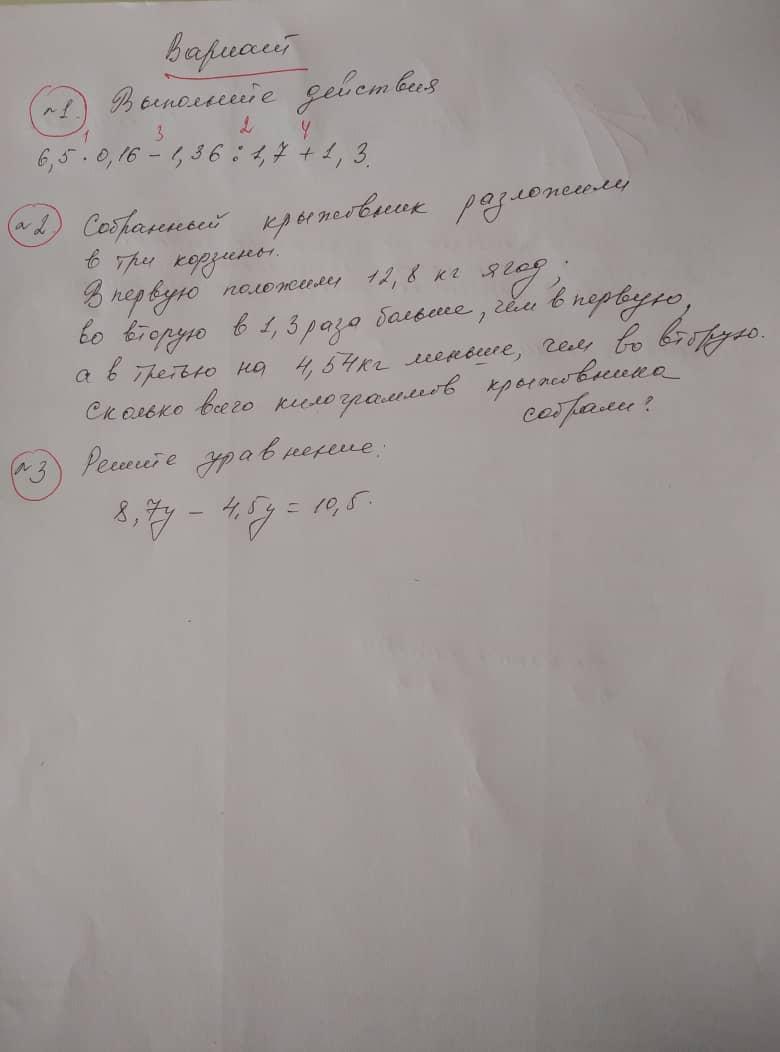 Вариант
№1. Выполните действия
1 3 2 4
6,5 · 0,16 – 1,36 : 1,7 + 1,3.
№2. Собранный крыжовник разложили
в три корзины.
В первую положили 12,8 кг ягод;
во вторую в 1,3 раза больше, чем в первую,
а в третью на 4,54 кг меньше, чем во вторую.
Сколько всего килограммов крыжовника
собрали?
№3 Решите уравнение:
8,7y – 4,5y = 10,5.